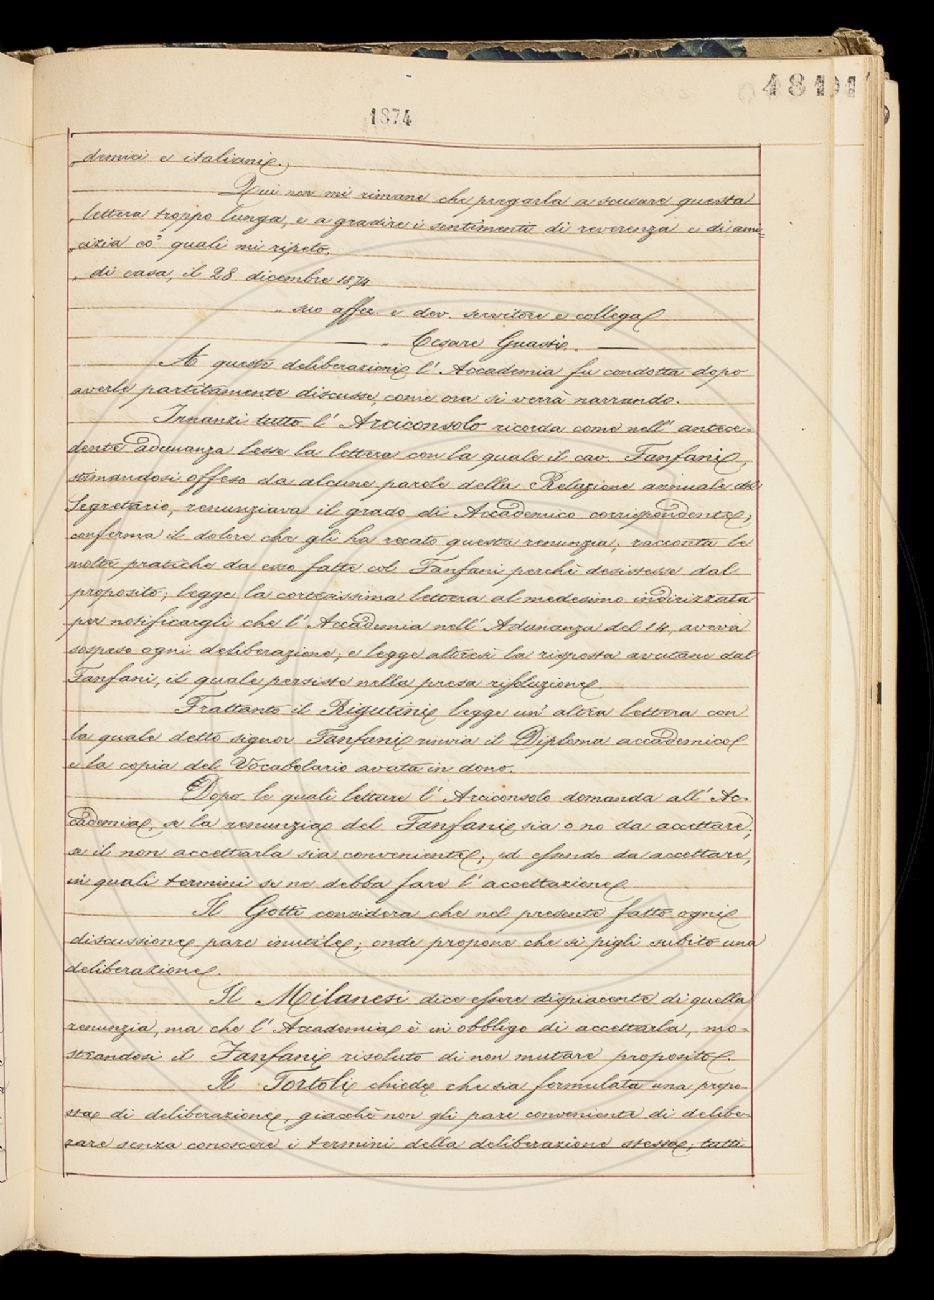 1874
„demici e italiani.
Qui non mi rimane che pregarla a scusare questa
„lettera troppo lunga, e a gradire i sentimenti di reverenza e di ami=
„cizia co' quali mi ripeto.
„ di casa, il 28 dicembre 1874
„ suo affez. e dev. servitore e collega
— „ Cesare Guasti. —
A queste deliberazioni l' Accademia fu condotta dopo
averle partitamente discusse, come ora si verrà narrando.
Innanzi tutto l' Arciconsolo ricorda come nell' antece-
dente adunanza lesse la lettera con la quale il cav. Fanfani,
stimandosi offeso da alcune parole della Relazione annuale del
Segretario, renunziava il grado di Accademico corrispondente;
conferma il dolore che gli ha recato questa renunzia; racconta le
molte pratiche da esso fatte col Fanfani perchè desistesse dal
proposito; legge la cortesissima lettera al medesimo indirizzata
per notificargli che l' Accademia nell' Adunanza del 14, aveva
sospeso ogni deliberazione; e legge altresì la risposta avutane dal
Fanfani, il quale persiste nella presa risoluzione.
Frattanto il Rigutini legge un' altra lettera con
la quale detto signor Fanfani rinvia il Diploma accademico
e la copia del Vocabolario avuta in dono.
Dopo le quali letture l' Arciconsolo domanda all' Ac-
cademia, se la renunzia del Fanfani sia o no da accettare;
se il non accettarla sia conveniente; ed essendo da accettare,
in quali termini se ne debba fare l' accettazione.
Il Gotti considera che nel presente fatto ogni
discussione pare inutile; onde propone che si pigli subito una
deliberazione.
Il Milanesi dice essere dispiacente di quella
renunzia, ma che l' Accademia è in obbligo di accettarla, mo-
strandosi il Fanfani risoluto di non mutare proposito.
Il Tortoli chiede che sia formulata una propo-
sta di deliberazione, giacchè non gli pare conveniente di delibe-
rare senza conoscere i termini della deliberazione stessa; tutti